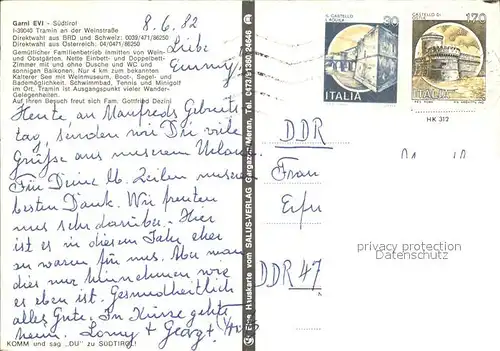 Garni EVI - Südtirol
I-39040 Tramin an der Weinstraße
Direktwahl aus BRD und Schweiz: 0039/471/86250
Direktwahl aus Österreich: 04/0471/86250
Gemütlicher Familienbetrieb inmitten von Wein-
und Obstgärten. Nette Einbett- und Doppelbett-
Zimmer mit und ohne Dusche und WC und
sonnigen Balkonen. Nur 4 km zum bekannten
Kalterer See mit Weinmuseum, Boot-, Bade- und
Bademöglichkeit. Schwimmbad, Tennis und Minigolf
im Ort. Tramin ist Ausgangspunkt vieler Wander-
Gelegenheiten.
Auf Ihren Besuch freut sich Fam. Gottfried Dezini
8.6.82
Liebe
Heute, an Manfreds Geburts
tag, senden wir Dir viele
Grüße aus unserem Urlaub.
Für Deine lb. Zeilen unseren
besten Dank. Wir freuten
uns sehr darüber. Hier
ist es in diesem Jahr eher
zu warm für uns. Aber man
muß hinnehmen wie
es eben ist. Gesundheitlich
alles Gute. In Kürze geht's
heim. Lorny + Georg +
KOMM und sag "DU" zu SÜDTIROL!
Eine Hauskarte vom SALUS-VERLAG Gargazon/Meran, Tel. 0473/91360 24646
90
ITALIA
170
ITALIA
HK 312
DDR
Frau
Erfu
DDR 47
phantasia@oldthing